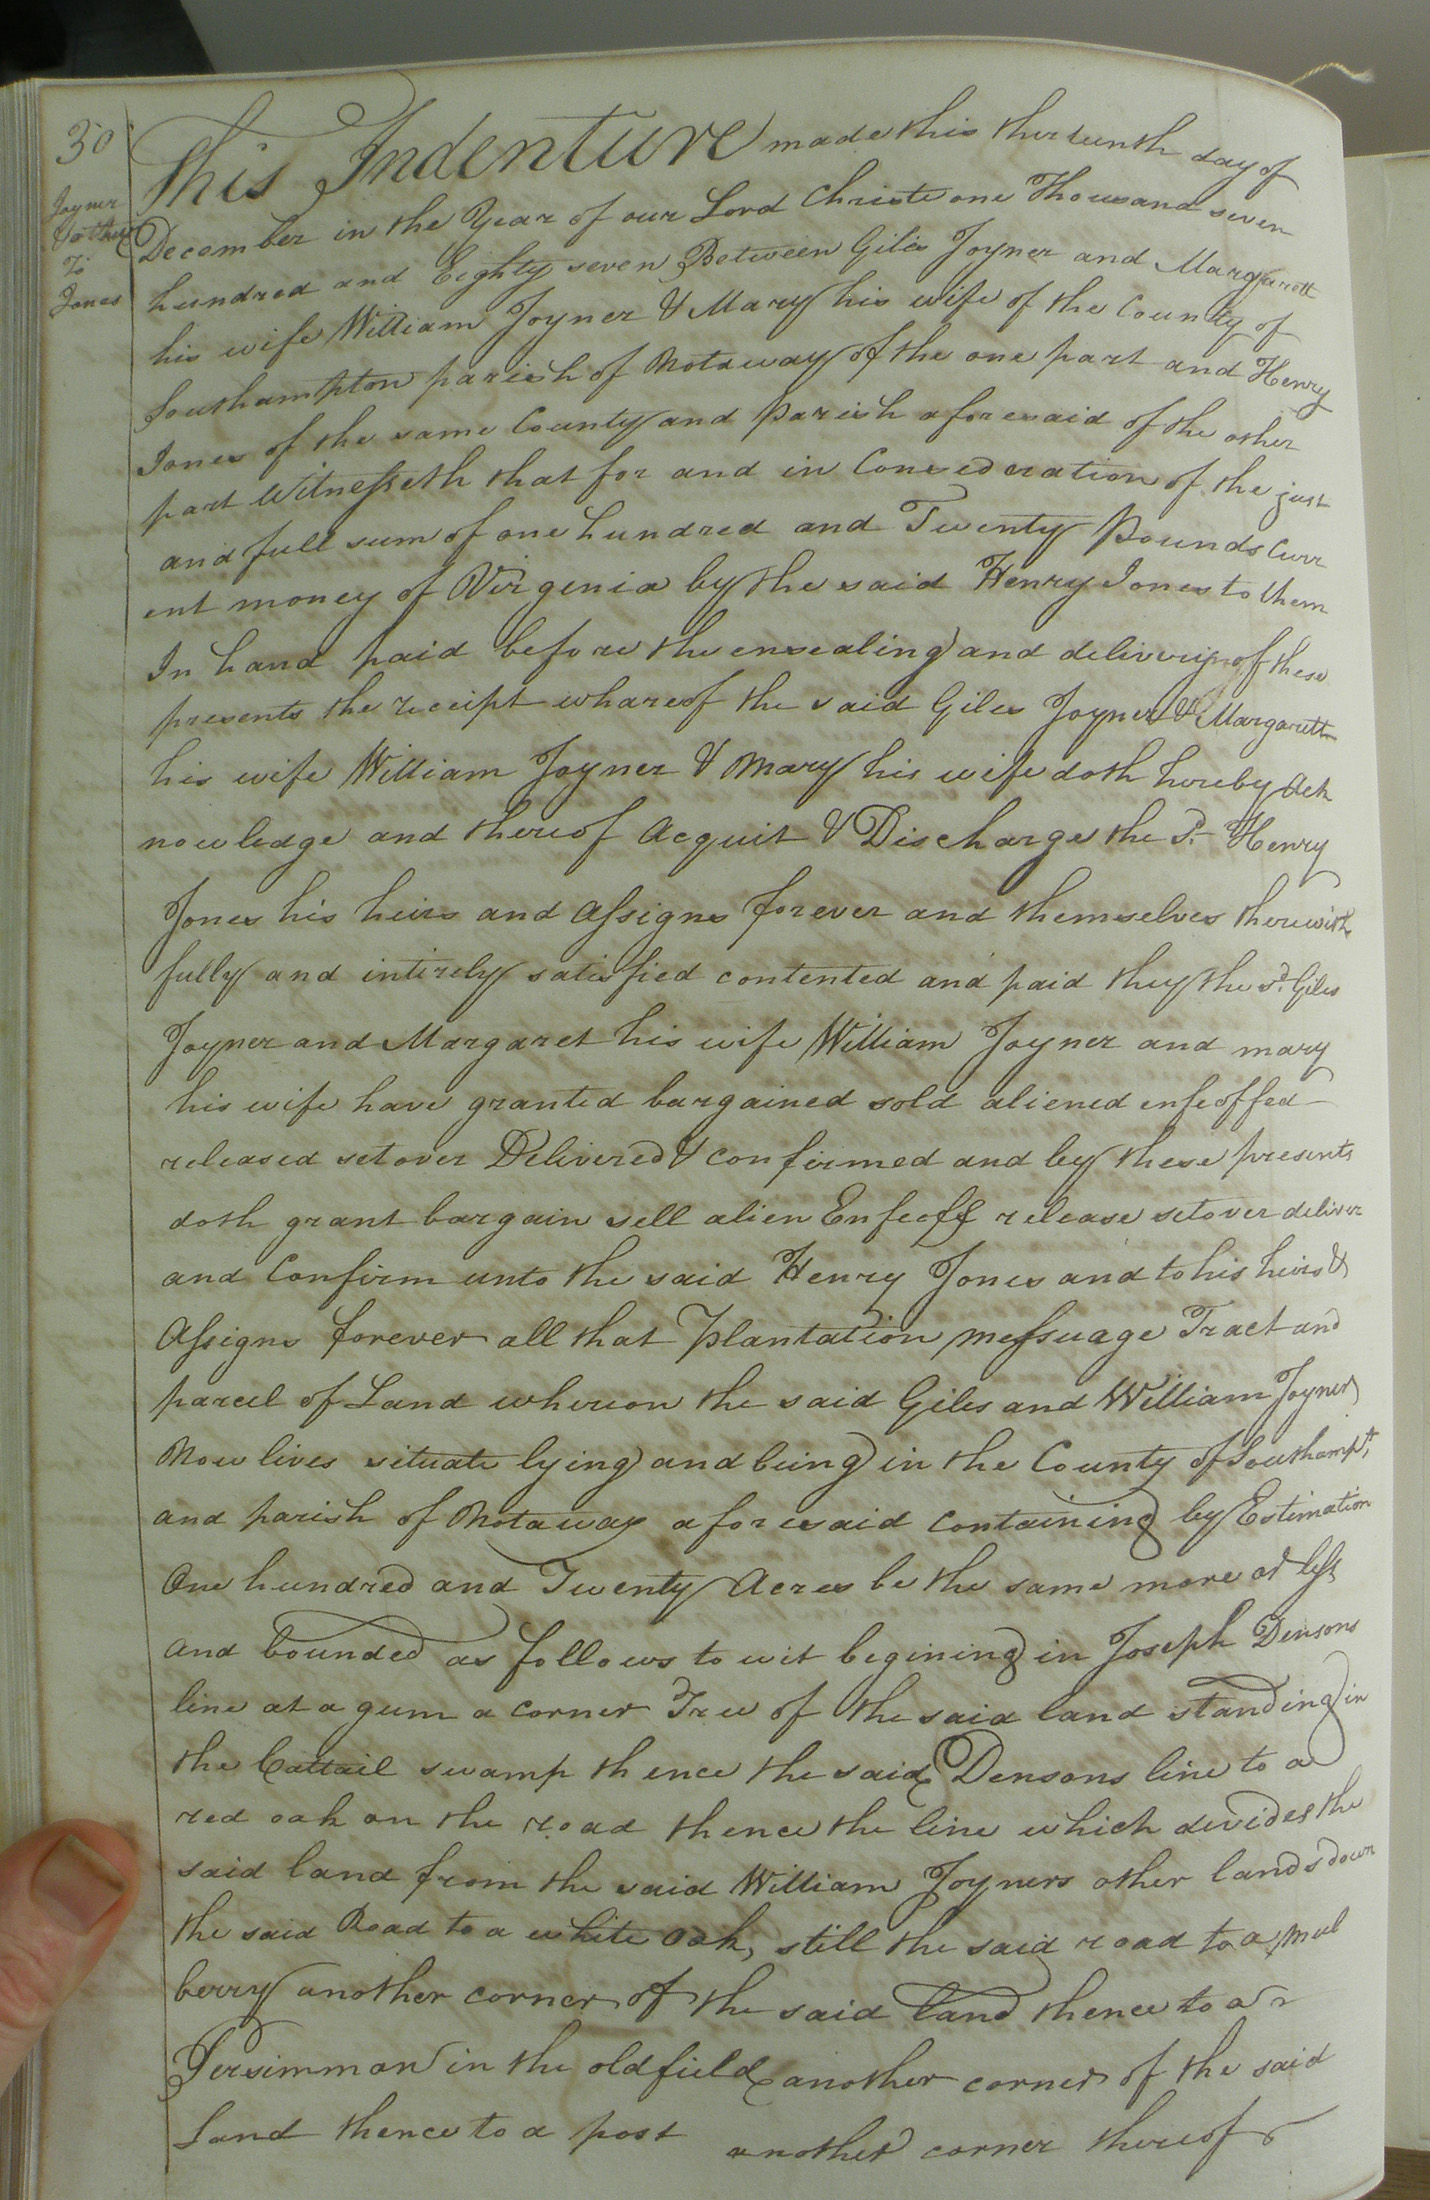 30
Joyner
& others
To
Jones
This Indenture made this thirteenth day of
December in the Year of our Lord Christ one Thousand seven
hundred and Eighty seven Between Giles Joyner and Margarett
his wife William Joyner & Mary his wife of the County of
Southampton parish of Notaway of the one part and Henry
Jones of the same County and parish aforesaid of the other
part Witnesseth that for and in Consederation of the just
and full sum of one hundred and Twenty Pounds Curr
ent money of Virgenia by the said Henry Jones to them
In hand paid before the ensealing and delivering of these
presents the receipt whareof the said Giles Joyner & Margarett
his wife William Joyner & Mary his wife doth hereby Ack
nowledge and thereof Acquit & Discharge the Sd. Henry
Jones his heirs and Assigns forever and themselves therewith
fully and intirely satisfied contented and paid they the sd. Giles
Joyner and Margaret his wife William Joyner and mary
his wife have granted bargained sold aliened enfeoffed
released setover Delivered & confirmed and by these presents
doth grant bargain sell alien Enfeoff release setover deliver
and Confirm unto the said Henry Jones and to his heirs &
Assigns forever all that Plantation messuage Tract and
parcel of Land whereon the said Giles and William Joyner
Now lives situate lying and being in the County of Southampt.
and parish of Notaway aforesaid containing by Estimation
One hundred and Twenty Acres be the same more or less
and bounded as follows to wit begining in Joseph Densons
line at a gum a corner Tree of the said land standing in
the Cattail swamp thence the said Densons line to a
red oak on the road thence the line which devides the
said land from the said William Joyners other lands down
the said Road to a white oak, still the said road to a mul
berry another corner of the said land thence to a
Persimmon in the old field another corner of the said
Land thence to a post another corner thereof